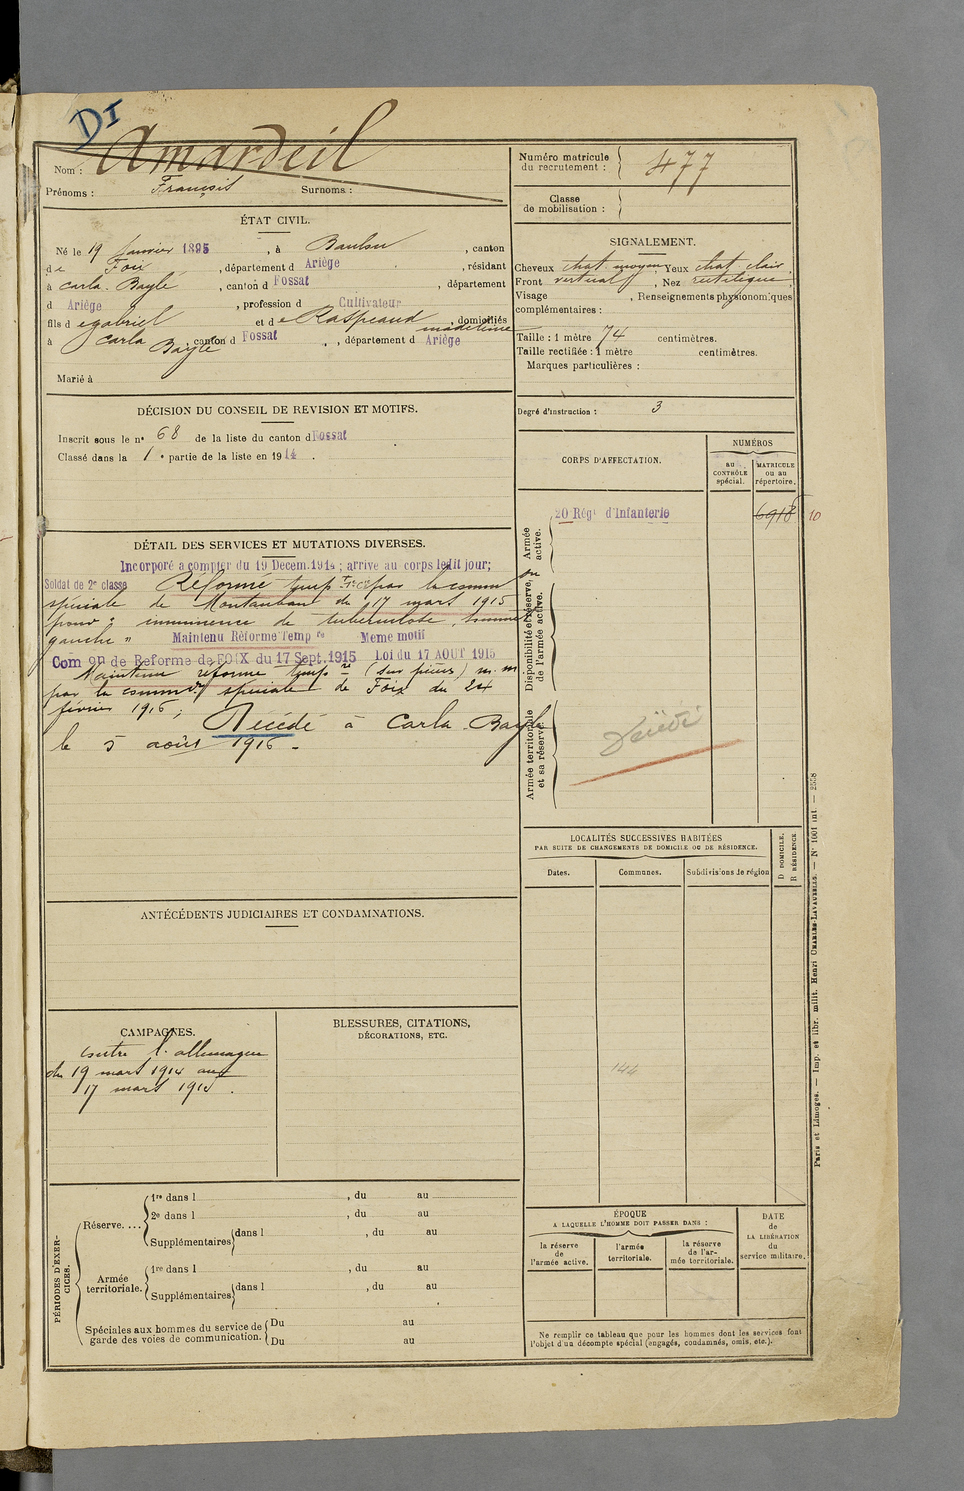 DI
Nom : Amardeil
Prénoms : François Surnoms :
ÉTAT CIVIL.
Né le 19 Janvier 1895, à Baulou, canton
de Foix, département d Ariège, résidant
à Carla-Bayle, canton d Fossat, département
d Ariège, profession d Cultivateur
fils d e gabriel et de Raspeaud madeleine, domiciliés
à Carla Bayle canton d Fossat, département d Ariège
Marié à
DÉCISION DU CONSEIL DE REVISION ET MOTIFS.
Inscrit sous le n° 68 de la liste du canton d Fossat
Classé dans la 1e partie de la liste en 1914.
DÉTAIL DES SERVICES ET MUTATIONS DIVERSES.
Incorporé a compter du 19 Decem. 1914 ; arrive au corps ledit jour;
Soldat de 2e classe Réformé temp par la comm on
spéciale de Montauban du 17 mars 1915
pour : imminence de tuberculose, sommet
gauche " Maintenu Réforme Temp re Meme motif
Com on de Reforme de FOIX du 17 Sept. 1915 Loi du 17 AOUT 1915
Maintenu réformé temp re (sur pièces) m. m
par la comm on spéciale de Foix du 24
février 1916; Décédé à Carla-Bayle
le 5 août 1916 -
ANTÉCÉDENTS JUDICIAIRES ET CONDAMNATIONS.
CAMPAGNES.
contre l'allemagne
du 19 mars 1914 au
17 mars 1915.
BLESSURES, CITATIONS,
DÉCORATIONS, ETC.
PÉRIODES D'EXERCICES.
Réserve....
1re dans l , du au
2e dans l , du au
Supplémentaires dans l , du au
Armée territoriale.
1re dans l , du au
Supplémentaires dans l , du au
Spéciales aux hommes du service de garde des voies de communication.
Du au
Du au
Numéro matricule du recrutement : 477
Classe de mobilisation :
SIGNALEMENT.
Cheveux chat. moyen, Yeux chat clair,
Front vertical, Nez rectiligne,
Visage , Renseignements physionomiques
complémentaires :
Taille : 1 mètre 74 centimètres.
Taille rectifiée : 1 mètre centimètres.
Marques particulières :
Degré d'instruction : 3
CORPS D'AFFECTATION.
NUMÉROS
au CONTRÔLE spécial.
MATRICULE ou au répertoire.
Armée active.
20 Régt d'Infanterie 6918 10
Disponibilité et réserve, de l'armée active.
Armée territoriale et sa réserve.
Décédé
LOCALITÉS SUCCESSIVES HABITÉES
PAR SUITE DE CHANGEMENTS DE DOMICILE OU DE RÉSIDENCE.
Dates.
Communes.
Subdivisions de région
D DOMICILE.
R RÉSIDENCE
144
ÉPOQUE
A LAQUELLE L'HOMME DOIT PASSER DANS :
la réserve de l'armée active.
l'armée territoriale.
la réserve de l'armée territoriale.
DATE de LA LIBÉRATION du service militaire.
Ne remplir ce tableau que pour les hommes dont les services font
l'objet d'un décompte spécial (engagés, condamnés, omis, etc.).
Paris et Limoges. — Imp. et libr. milit. Henri CHARLES-LAVAUZELLE. — N° 1001 int. — 2558